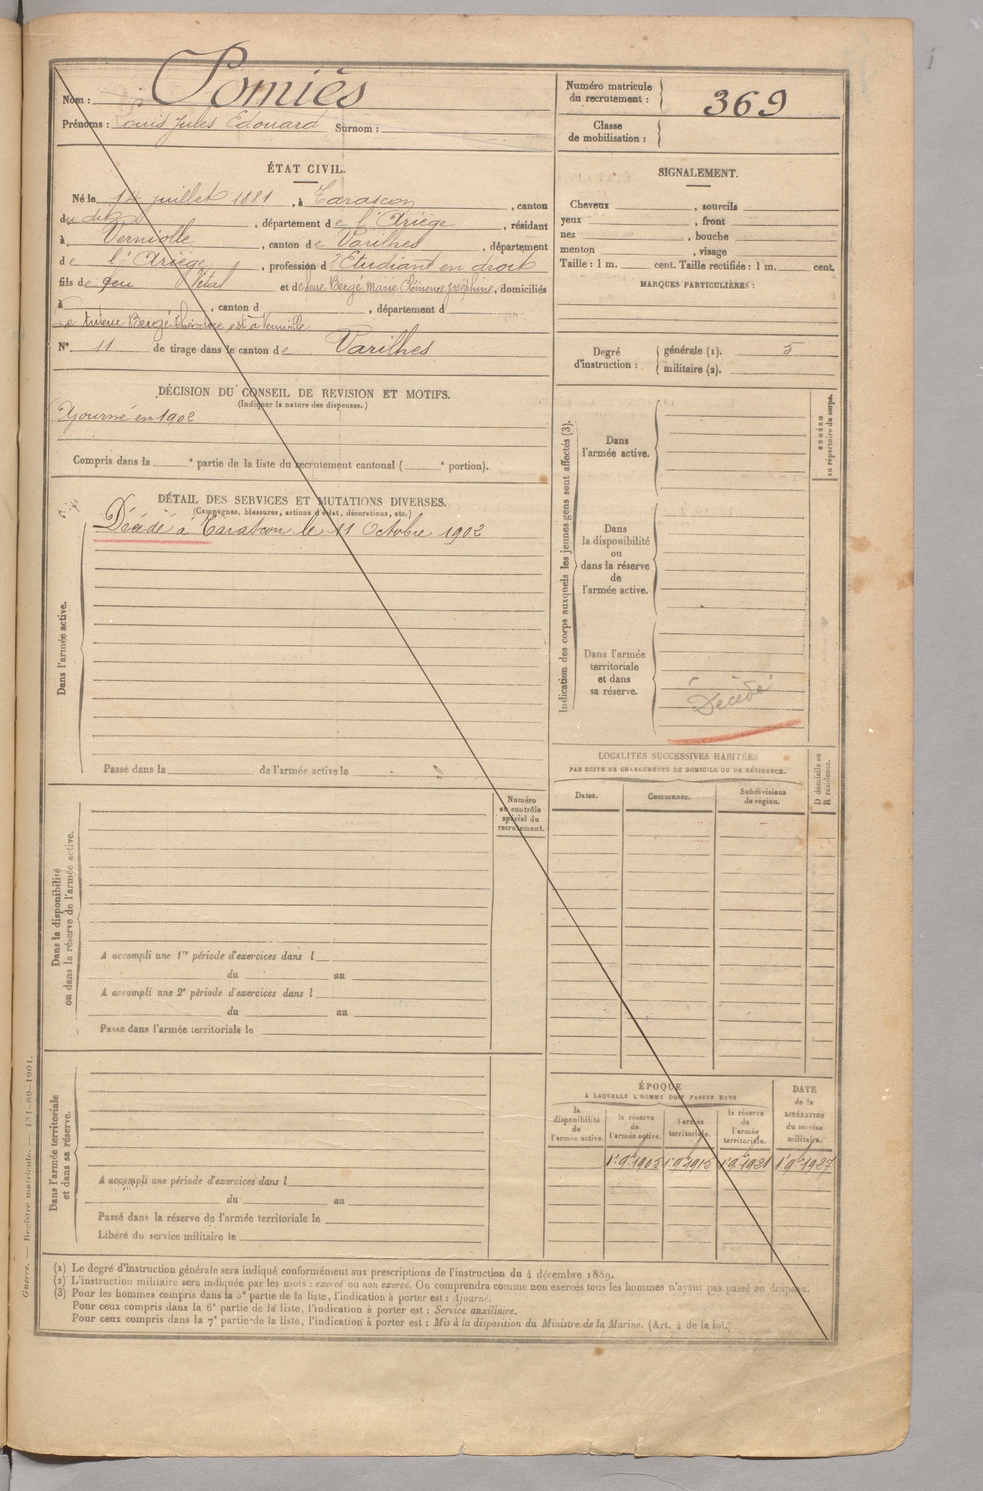 Nom : Pomiès
Prénoms : Louis Jules Edouard Surnom :
Numéro matricule du recrutement : 369
Classe de mobilisation :
ÉTAT CIVIL.
Né le 14 juillet 1881, à Tarascon, canton
du dit, département de l'Ariège, résidant
à Verniolle, canton de Varilhes, département
de l'Ariège, profession d'Etudiant en droit
fils de feu Vital et de feue Bergé Marie Clémence Joséphine, domiciliés
à , canton d , département d
Le tuteur Bergé est à Verniolle
N° 11 de tirage dans le canton de Varilhes
DÉCISION DU CONSEIL DE REVISION ET MOTIFS.
(Indiquer la nature des dispenses.)
Ajourné en 1902
Compris dans la e partie de la liste du recrutement cantonal ( e portion).
DÉTAIL DES SERVICES ET MUTATIONS DIVERSES.
(Campagnes, blessures, actions d'éclat, décorations, etc.)
Décédé à Tarascon le 11 Octobre 1902
Dans l'armée active.
Passé dans la de l'armée active le
Numéro au contrôle spécial du recrutement.
Dans la disponibilité ou dans la réserve de l'armée active.
A accompli une 1re période d'exercices dans l
du au
A accompli une 2e période d'exercices dans l
du au
Passé dans l'armée territoriale le
Dans l'armée territoriale et dans sa réserve.
A accompli une période d'exercices dans l
du au
Passé dans la réserve de l'armée territoriale le
Libéré du service militaire le
SIGNALEMENT.
Cheveux , sourcils
yeux , front
nez , bouche
menton , visage
Taille : 1 m. cent. Taille rectifiée : 1 m. cent.
MARQUES PARTICULIÈRES :
Degré d'instruction : générale (1). 3
militaire (2).
Indication des corps auxquels les jeunes gens sont affectés (3).
NUMÉRO au répertoire du corps.
Dans l'armée active.
Dans la disponibilité ou dans la réserve de l'armée active.
Dans l'armée territoriale et dans sa réserve.
Décédé
LOCALITÉS SUCCESSIVES HABITÉES
PAR SUITE DE CHANGEMENTS DE DOMICILE OU DE RÉSIDENCE.
D domicile ou R résidence.
Dates. Communes. Subdivisions de région.
ÉPOQUE
À LAQUELLE L'HOMME DOIT PASSER DANS
la disponibilité de l'armée active.
la réserve de l'armée active.
l'armée territoriale.
la réserve de l'armée territoriale.
DATE de la LIBÉRATION du service militaire.
1er 9bre 1905 1er 9bre 1915 1er 9bre 1921 1er 9bre 1927
(1) Le degré d'instruction générale sera indiqué conformément aux prescriptions de l'instruction du 4 décembre 1889.
(2) L'instruction militaire sera indiquée par les mots : exercé ou non exercé. On comprendra comme non exercés tous les hommes n'ayant pas passé au drapeau.
(3) Pour les hommes compris dans la 5e partie de la liste, l'indication à porter est : Ajourné.
Pour ceux compris dans la 6e partie de la liste, l'indication à porter est : Service auxiliaire.
Pour ceux compris dans la 7e partie de la liste, l'indication à porter est : Mis à la disposition du Ministre de la Marine. (Art. 4 de la loi.)
Guerre. — Registre matricule. — 131-89-1901.